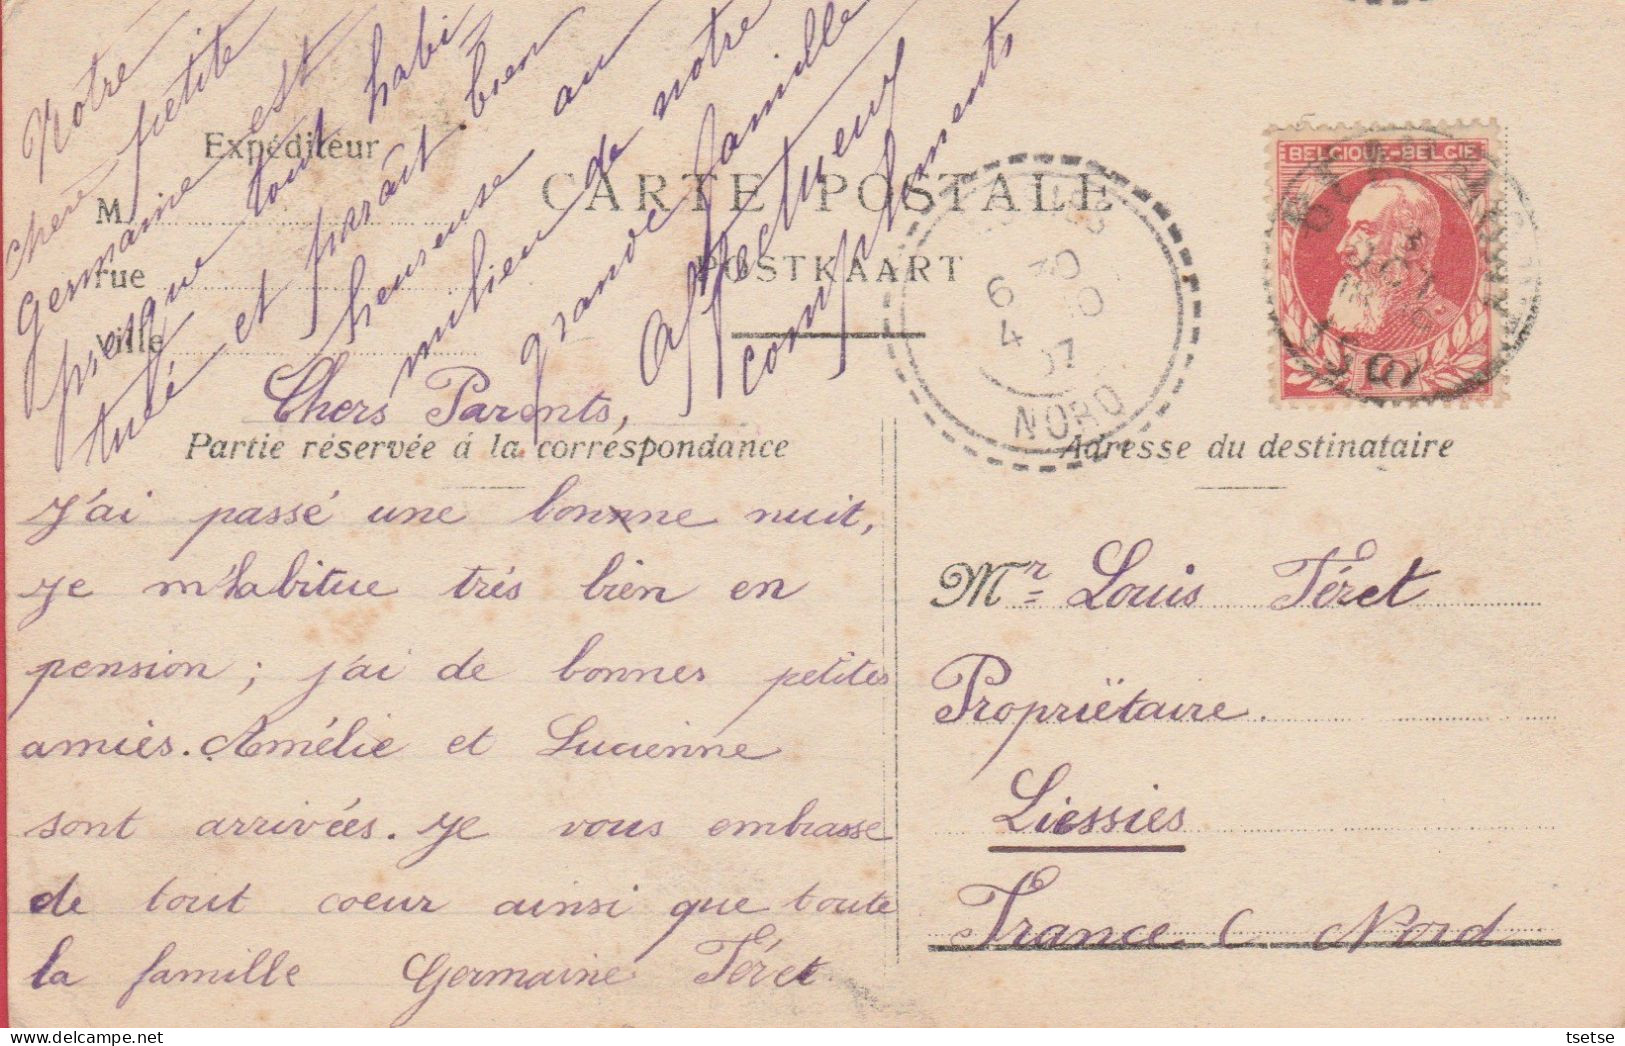 Notre
chère petite
Germaine est
presque tout habi
tuée et parait bien
heureuse au
milieu de notre
grande famille
Affectueux
compliments
Expéditeur
M
rue
Ville
CARTE POSTALE
POSTKAART
BELGIQUE-BELGIË
6 30
4 10
07
NORD
1907
Chers Parents,
Partie réservée á la correspondance
J'ai passé une bonne nuit,
je m'habitue très bien en
pension ; j'ai de bonnes petites
amies. Amélie et Lucienne
sont arrivées. Je vous embrasse
de tout coeur ainsi que toute
la famille Germaine Téret
Adresse du destinataire
Mr Louis Téret
Propriëtaire.
Liessies
France ( Nord
tsetse